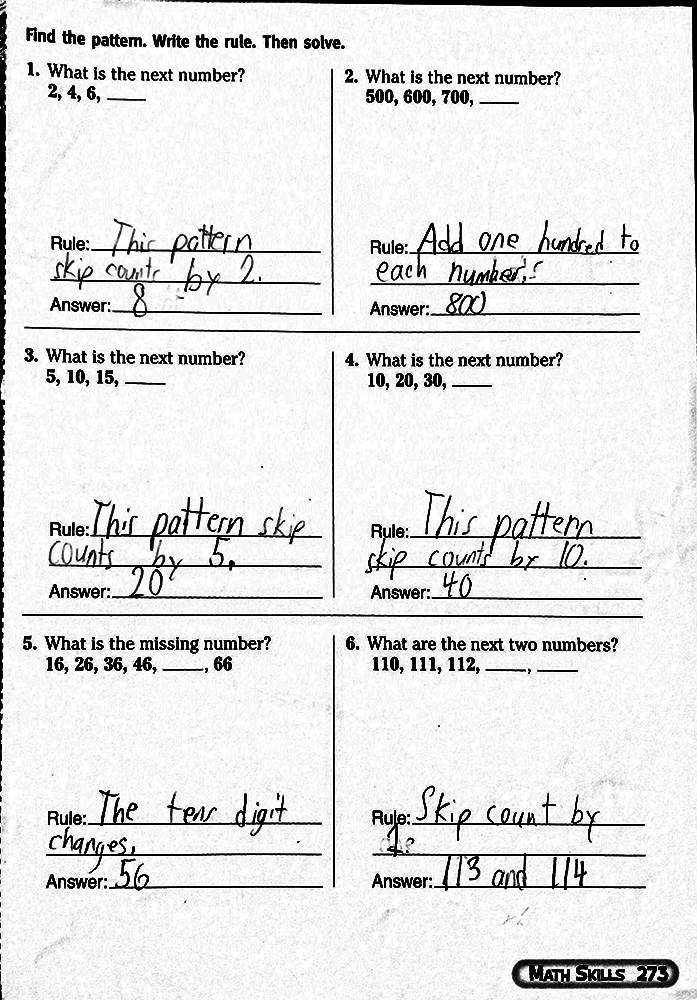 Find the pattern. Write the rule. Then solve.
1. What is the next number?
2, 4, 6, ____
Rule: This pattern
skip counts by 2.
Answer: 8
2. What is the next number?
500, 600, 700, ____
Rule: Add one hundred to
each number.
Answer: 800
3. What is the next number?
5, 10, 15, ____
Rule: This pattern skip
counts by 5.
Answer: 20
4. What is the next number?
10, 20, 30, ____
Rule: This pattern
skip counts by 10.
Answer: 40
5. What is the missing number?
16, 26, 36, 46, ____, 66
Rule: The tens digit
changes.
Answer: 56
6. What are the next two numbers?
110, 111, 112, ____, ____
Rule: Skip count by
1.
Answer: 113 and 114
MATH SKILLS 273